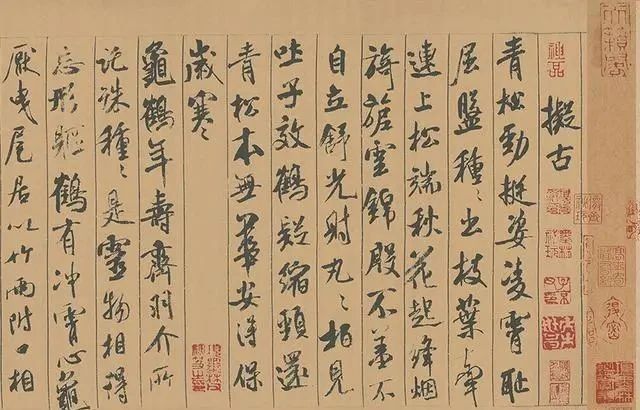 擬古
青松勁挺姿凌霄恥
屈盤種〻出枝葉牽
連上松端秋花起絳烟
旖旎雲錦殷不羞不
自立舒光射丸〻柏見
吐子效鶴疑縮頸還
青松本無華安得保
歲寒
龜鶴年壽齊羽介所
託殊種〻是靈物相得
忘形軀鶴有沖霄心龜
厭曳尾居以竹兩附口相